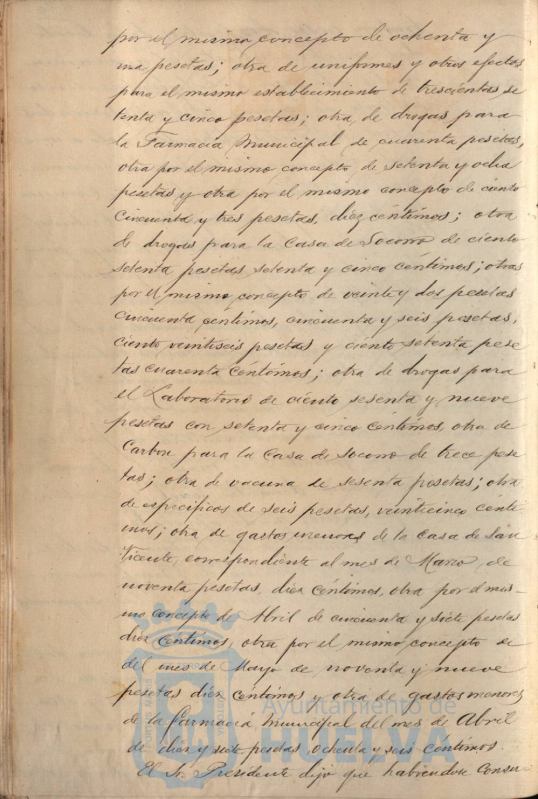 por el mismo concepto de ochenta y
una pesetas; otra de uniformes y otros efectos
para el mismo establecimiento de trescientas, se
tenta y cinco pesetas; otra de drogas para
la Farmacia Municipal de cuarenta pesetas,
otra por el mismo concepto de setenta y ocho
pesetas y otra por el mismo concepto de ciento
cincuenta y tres pesetas, diez céntimos; otra
de drogas para la Casa de Socorro de ciento
setenta pesetas, setenta y cinco céntimos; otras
por el mismo concepto de veinte y dos pesetas
cincuenta céntimos, cincuenta y seis pesetas,
ciento veintiseis pesetas y ciento setenta pese
tas cuarenta céntimos; otra de drogas para
el Laboratorio de ciento sesenta y nueve
pesetas con setenta y cinco céntimos, otra de
Carbon para la Casa de Socorro de trece pese
tas; otra de vacuna de sesenta pesetas; otra
de específicos de seis pesetas, veinticinco cénti
mos; otra de gastos menores de la Casa de San
Vicente, correspondiente al mes de Marzo, de
noventa pesetas, diez céntimos, otra por el mis-
mo concepto de Abril de cincuenta y siete pesetas
diez céntimos, otra por el mismo concepto de
del mes de Mayo de noventa y nueve
pesetas diez céntimos y otra de gastos menores
de la Farmacia Municipal del mes de Abril
de diez y siete pesetas, ochenta y seis céntimos.
El Sr. Presidente dijo que habiendose consu-
Ayuntamiento de
HUELVA